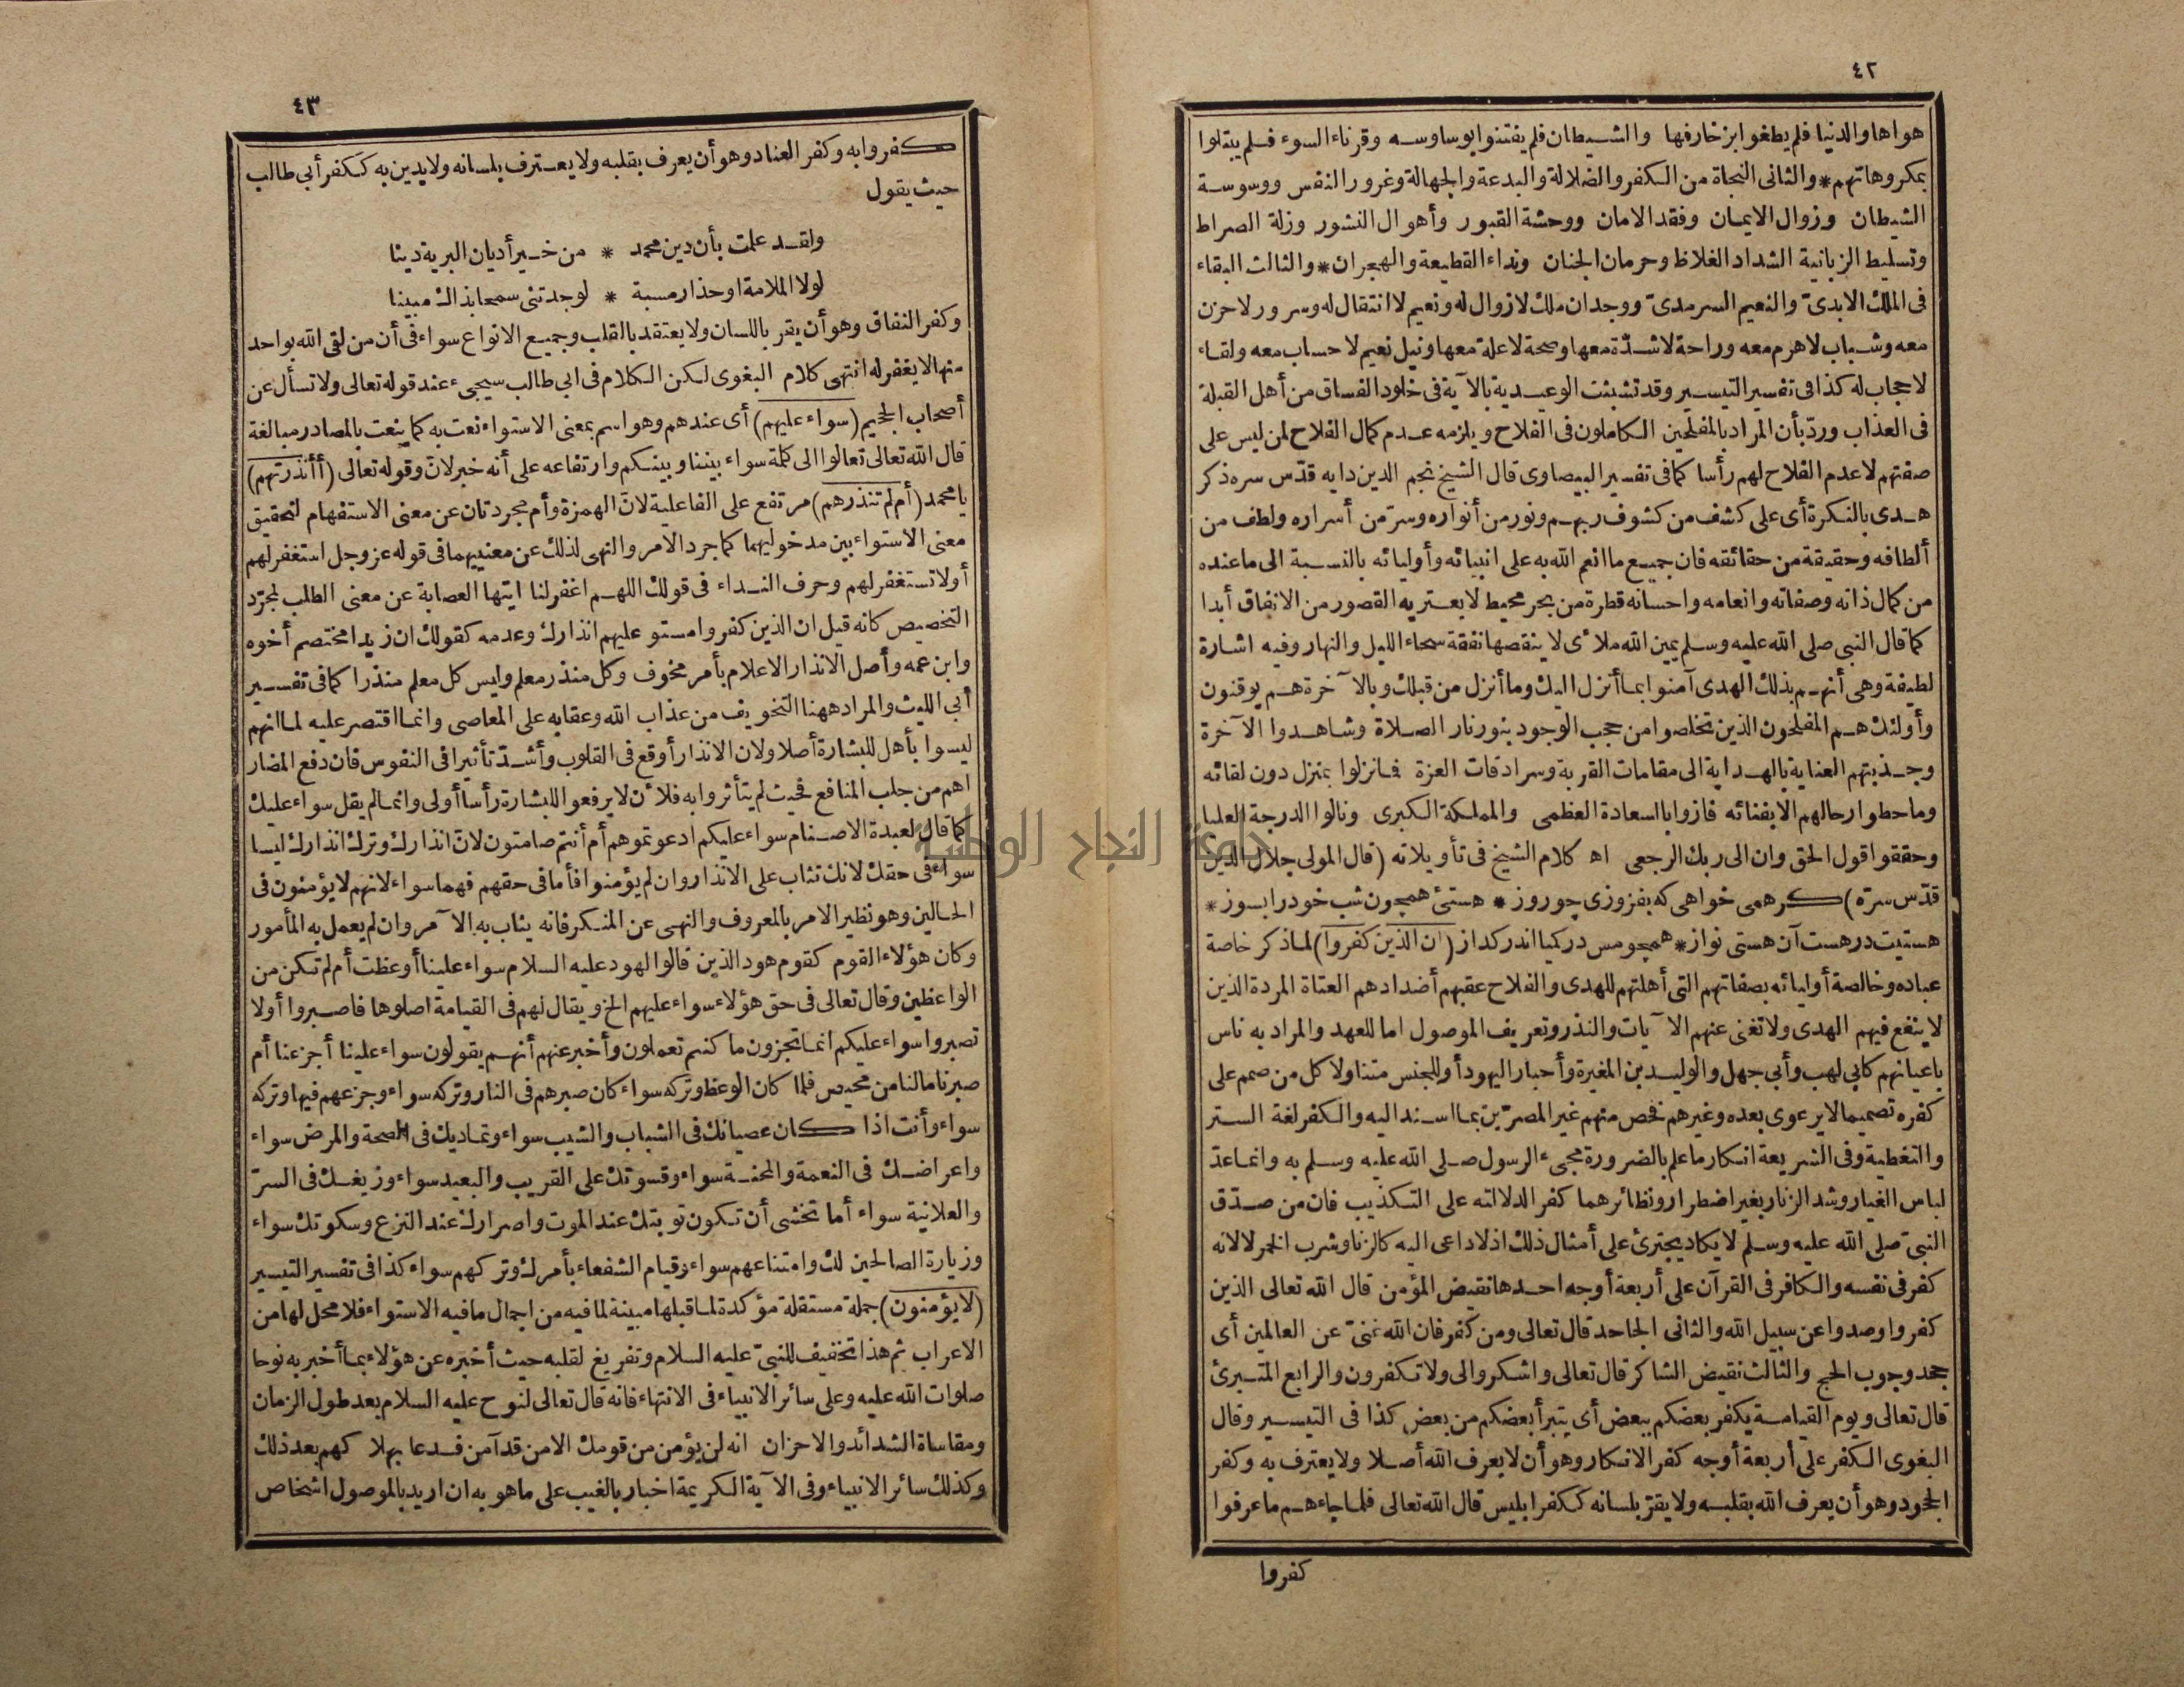 ٤٢
هواها والدنيا فلم يطغوا بزخارفها والشيطان فلم يفتنوا بوساوسه وقرناء السوء فلم يبتلوا
بمكروهاتهم * والثانى النجاة من الكفر والضلالة والبدعة والجهالة وغرور النفس ووسوسة
الشيطان وزوال الايمان وفقد الامان ووحشة القبور وأهوال النشور وزلة الصراط
وتسليط الزبانية الشداد الغلاظ وحرمان الجنان ونداء القطيعة والهجران * والثالث البقاء
فى الملك الابدىّ والنعيم السرمدىّ ووجدان ملك لا زوال له ونعيم لا انتقال له وسرور لا حزن
معه وشباب لا هرم معه وراحة لا شدّة معها وصحة لا علة معها ونيل نعيم لا حساب معه ولقاء
لا حجاب له كذا فى تفسير التيسير وقد تشبثت الوعيدية بالآية فى خلود الفساق من أهل القبلة
فى العذاب وردّ بأن المراد بالمفلحين الكاملون فى الفلاح ويلزمه عدم كمال الفلاح لمن ليس على
صفتهم لا عدم الفلاح لهم رأسا كما فى تفسير البيضاوى قال الشيخ نجم الدين دايه قدّس سره ذكر
هدى بالنكرة أى على كشف من كشوف ربهم ونور من أنواره وسرّ من أسراره ولطف من
ألطافه وحقيقة من حقائقه فان جميع ما انعم الله به على انبيائه وأوليائه بالنسبة الى ما عنده
من كمال ذاته وصفاته وانعامه واحسانه قطرة من بحر محيط لا يعتريه القصور من الانفاق أبدا
كما قال النبى صلى الله عليه وسلم يمين الله ملأى لا ينقصها نفقة سحاء الليل والنهار وفيه اشارة
لطيفة وهى أنهم بذلك الهدى آمنوا بما أنزل اليك وما أنزل من قبلك وبالآخرة هم يوقنون
وأولئك هم المفلحون الذين تخلصوا من حجب الوجود بنور نار الصلاة وشاهدوا الآخرة
وجذبتهم العناية بالهداية الى مقامات القربة وسرادقات العزة فما نزلوا بمنزل دون لقائه
وما حطوا رحالهم الا بفنائه فازوا بالسعادة العظمى والمملكة الكبرى ونالوا الدرجة العليا
وحققوا قول الحق وان الى ربك الرجعى اه كلام الشيخ فى تأويلاته (قال المولى جلال الدين
قدّس سرّه) كرهمى خواهى كه بفزوزى چو روز * هستئ همچون شب خود را بسوز *
هستيت در هست آن هستى نواز * همچو مس در كيميا اندر كداز (ان الذين كفروا) لما ذكر خاصة
عباده وخالصة أوليائه بصفاتهم التى أهلتهم للهدى والفلاح عقبهم أضدادهم العتاة المردة الذين
لا ينفع فيهم الهدى ولا تغنى عنهم الآيات والنذر وتعريف الموصول اما للعهد والمراد به ناس
باعيانهم كابى لهب وأبى جهل والوليد بن المغيرة وأحبار اليهود أو للجنس متناولا كل من صمم على
كفره تصميما لا يرعوى بعده وغيرهم فخص منهم غير المصرّين بما اسند اليه والكفر لغة الستر
والتغطية وفى الشريعة انكار ما علم بالضرورة مجىء الرسول صلى الله عليه وسلم به وانما عدّ
لباس الغيار وشد الزنار بغير اضطرار ونظائرهما كفر الدلالته على التكذيب فان من صدّق
النبىّ صلى الله عليه وسلم لا يكاد يجترئ على أمثال ذلك اذ لا داعى اليه كالزنا وشرب الخمر لا لانه
كفر فى نفسه والكافر فى القرآن على أربعة أوجه احدها نقيض المؤمن قال الله تعالى الذين
كفروا وصدوا عن سبيل الله والثانى الجاحد قال تعالى ومن كفر فان الله غنىّ عن العالمين أى
جحد وجوب الحج والثالث نقيض الشاكر قال تعالى واشكروا لى ولا تكفرون والرابع المتبرئ
قال تعالى ويوم القيامة يكفر بعضكم ببعض أى يتبرأ بعضكم من بعض كذا فى التيسير وقال
البغوى الكفر على أربعة أوجه كفر الانكار وهو أن لا يعرف الله أصلا ولا يعترف به وكفر
الجحود وهو أن يعرف الله بقلبه ولا يقرّ بلسانه ككفر ابليس قال الله تعالى فلما جاءهم ما عرفوا
كفروا
٤٣
كفروا به وكفر العناد وهو أن يعرف بقلبه ولا يعترف بلسانه ولا يدين به ككفر أبى طالب
حيث يقول
ولقد علمت بأن دين محمد * من خير أديان البرية دينا
لولا الملامة او حذار مسبة * لوجدتنى سمحا بذاك مبينا
وكفر النفاق وهو أن يقر باللسان ولا يعتقد بالقلب وجميع الانواع سواء فى أن من لقى الله بواحد
منها لا يغفر له انتهى كلام البغوى لكن الكلام فى ابى طالب سيجىء عند قوله تعالى ولا تسأل عن
أصحاب الجحيم (سواء عليهم) أى عندهم وهو اسم بمعنى الاستواء نعت به كما ينعت بالمصادر مبالغة
قال الله تعالى تعالوا الى كلمة سواء بيننا وبينكم وارتفاعه على أنه خبر لانّ وقوله تعالى (أأنذرتهم)
يا محمد (أم لم تنذرهم) مرتفع على الفاعلية لانّ الهمزة وأم مجردتان عن معنى الاستفهام لتحقيق
معنى الاستواء بين مدخوليهما كما جرد الامر والنهى لذلك عن معنييهما فى قوله عز وجل استغفر لهم
أو لا تستغفر لهم وحرف النداء فى قولك اللهم اغفر لنا ايتها العصابة عن معنى الطلب لمجرّد
التخصيص كانه قيل ان الذين كفروا مستو عليهم انذارك وعدمه كقولك ان زيدا مختصم أخوه
وابن عمه وأصل الانذار الاعلام بأمر مخوف وكل منذر معلم وليس كل معلم منذرا كما فى تفسير
أبى الليث والمراد ههنا التخويف من عذاب الله وعقابه على المعاصى وانما اقتصر عليه لما انهم
ليسوا بأهل للبشارة أصلا ولان الانذار أوقع فى القلوب وأشدّ تأثيرا فى النفوس فان دفع المضار
اهم من جلب المنافع فحيث لم يتأثروا به فلأن لا يرفعوا للبشارة رأسا أولى وانما لم يقل سواء عليك
كما قال لعبدة الاصنام سواء عليكم ادعوتموهم أم أنتم صامتون لانّ انذارك وترك انذارك ليسا
سواء فى حقك لانك تثاب على الانذار وان لم يؤمنوا فأما فى حقهم فهما سواء لانهم لا يؤمنون فى
الحالين وهو نظير الامر بالمعروف والنهى عن المنكر فانه يثاب به الآمر وان لم يعمل به المأمور
وكان هؤلاء القوم كقوم هود الذين قالوا لهود عليه السلام سواء علينا أوعظت أم لم تكن من
الواعظين وقال تعالى فى حق هؤلاء سواء عليهم الخ ويقال لهم فى القيامة اصلوها فاصبروا أو لا
تصبروا سواء عليكم انما تجزون ما كنتم تعملون وأخبر عنهم أنهم يقولون سواء علينا أجزعنا أم
صبرنا ما لنا من محيص فلما كان الوعظ وتركه سواء كان صبرهم فى النار وتركه سواء وجزعهم فيها وتركه
سواء وأنت اذا كان عصيانك فى الشباب والشيب سواء وتماديك فى الصحة والمرض سواء
واعراضك فى النعمة والمحنة سواء وقسوتك على القريب والبعيد سواء وزيغك فى السرّ
والعلانية سواء أما تخشى أن تكون توبتك عند الموت واصرارك عند النزع وسكوتك سواء
وزيارة الصالحين لك وامتناعهم سواء وقيام الشفعاء بأمرك وتركهم سواء كذا فى تفسير التيسير
(لا يؤمنون) جملة مستقلة مؤكدة لما قبلها مبينة لما فيه من اجمال ما فيه الاستواء فلا محل لها من
الاعراب ثم هذا تخفيف للنبىّ عليه السلام وتفريغ لقلبه حيث أخبره عن هؤلاء بما أخبر به نوحا
صلوات الله عليه وعلى سائر الانبياء فى الانتهاء فانه قال تعالى لنوح عليه السلام بعد طول الزمان
ومقاساة الشدائد والاحزان انه لن يؤمن من قومك الا من قد آمن فدعا بهلاكهم بعد ذلك
وكذلك سائر الانبياء وفى الآية الكريمة اخبار بالغيب على ما هو به ان اريد بالموصول اشخاص
جامعة النجاح الوطنية